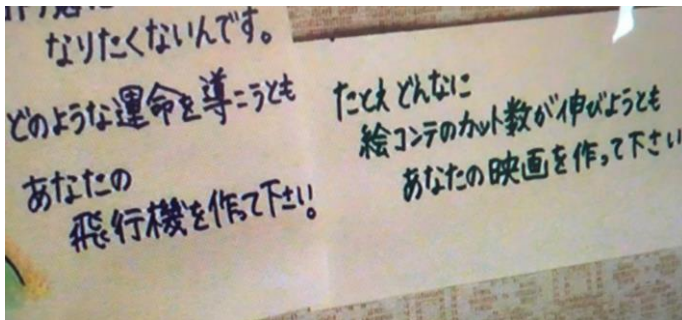 なりたくないんです。
どのような運命を導こうとも
あなたの
飛行機を作って下さい。
たとえ どんなに
絵コンテのカット数が伸びようとも
あなたの映画を作って下さい